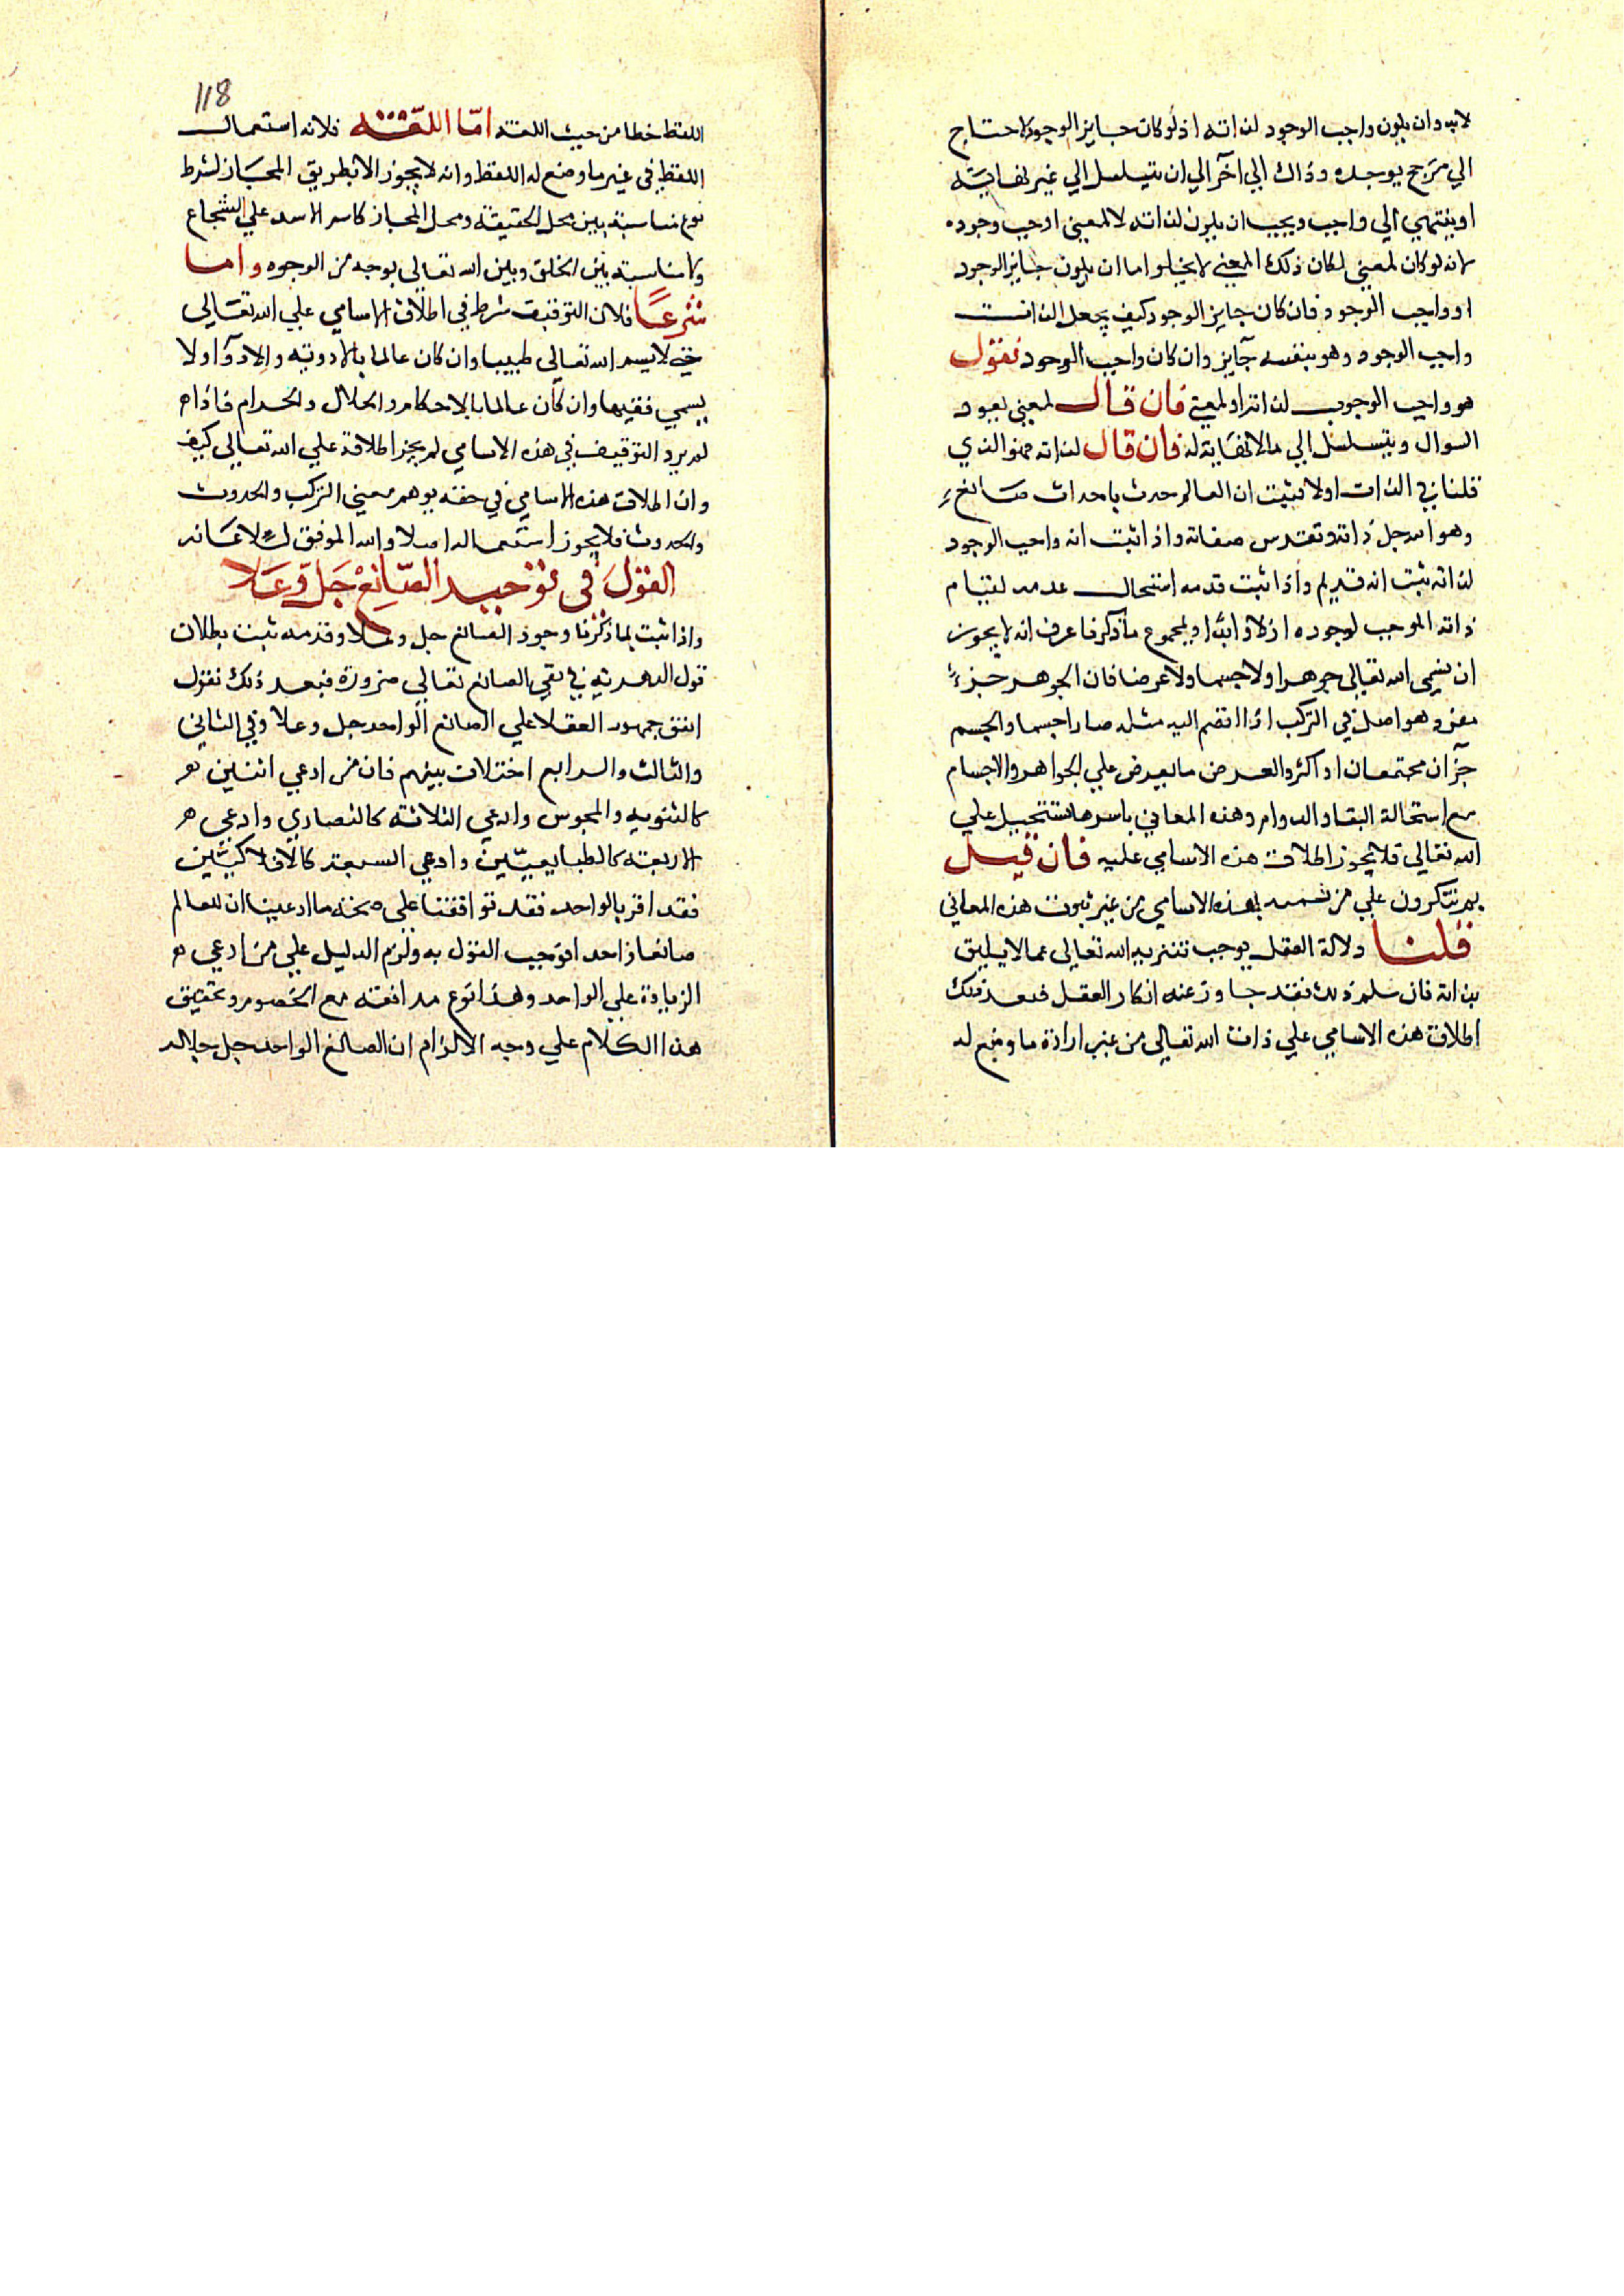 لابد وان يكون واجب الوجود لذاته اذ لو كان جايز الوجود لاحتاج
الي مرجح يوجده وذاك الي اخر الي ان يتسلسل الي غير نهاية
او ينتهي الي واجب ويجب ان يكون لذاته لا لمعني اوجب وجوده
لانه لو كان لمعني لكان ذلك المعني لا يخلو اما ان يكون جايز الوجود
او واجب الوجود فان كان جايز الوجود كيف يجعل الذات
واجب الوجود وهو بنفسه جآيز وان كان واجب الوجود نقول
هو واجب الوجوب لذاته او لمعني فان قال لمعني يعود
السوال ويتسلسل الي ما لا نهاية له فان قال لذاته فهو الذي
قلنا في الذات اولا فثبت ان العالم حدث باحداث صانع
وهو الله جل ذاته وتقدس صفاته واذا ثبت انه واجب الوجود
لذاته ثبت انه قديم واذا ثبت قدمه استحال عدمه لقيام
ذاته الموجب لوجوده ازلا وابدا وبمجموع ما ذكرنا عرف انه لا يجوز
ان يسمى الله تعالى جوهرا ولا جسما ولا عرضا فان الجوهر جزء
مفرد هو اصل في التركب اذا انضم اليه مثله صارا جسما والجسم
جزآن مجتمعان او اكثر والعرض ما يعرض علي الجواهر والاجسام
مع استحالة البقاء والدوام وهذه المعاني باسرها تستحيل علي
الله تعالى فلا يجوز اطلاق هذه الاسامي عليه فان قيل
بم تنكرون علي من تسميه بهذه الاسامي من غير ثبوت هذه المعاني
قلنا دلالة العقل يوجب تنزيه الله تعالى عما لا يليق
بذاته فان سلم ذلك فقد جاوز عنه انكار العقل فبعد ذلك
اطلاق هذه الاسامي علي ذات الله تعالى من غير ارادة ما وضع له
118
اللفظ خطا من حيث اللغة اما اللغة فلانه استعمال
اللفظ في غير ما وضع له اللفظ وانه لا يجوز الا بطريق المجاز لشرط
نوع مناسبة بين محل الحقيقة ومحل المجاز كاسم الاسد علي الشجاع
ولا مناسبة بين الخلق وبين الله تعالي بوجه من الوجوه واما
شرعا فلان التوقيف شرط في اطلاق الاسامي علي الله تعالى
حتى لا يسم الله تعالي طبيبا وان كان عالما بالادوية والادوآ ولا
يسمي فقيها وان كان عالما بالاحكام والحلال والحرام فاذا م
لم يرد التوقيف في هذه الاسامي لم يجز اطلاقه علي الله تعالى كيف
وان اطلاق هذه الاسامي في حقه يوهم معنى التركب والحدوث
والحدوث فلا يجوز استعماله اصلا والله الموفق
القول في توحيد الصانع جل وعلا
واذا ثبت بما ذكرنا وجود الصانع جل وعلا وقدمه ثبت بطلان
قول الدهرية في نفي الصانع تعالي ضرورة فبعد ذلك نقول
اتفق جمهور العقلا علي الصانع الواحد جل وعلا وفي الثاني
والثالث والرابع اختلاف بينهم فان من ادعي اثنين هم
كالثنوية والمجوس وادعي الثلاثة كالنصاري وادعي هم
الاربعة كالطبايعيين وادعي السبعة كالافلاكيين
فقد اقر بالواحد فقد توافقنا علي صحة ما ادعينا ان للعالم
صانعا واحدا فوجب القول به ولزم الدليل علي من ادعي هم
الزيادة علي الواحد وهذا نوع مدافعة مع الخصوم وتحقيق
هذا الكلام علي وجه الالزام ان الصانع الواحد جل جلاله